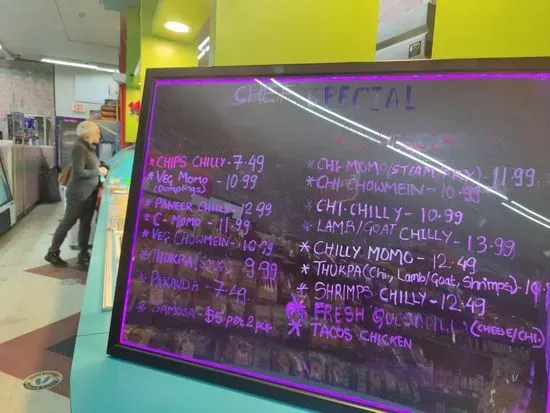 CHEF SPECIAL
* CHIPS CHILLY - 7.49
* VEG MOMO - 10.99
(Dumplings)
* PANEER CHILLY - 12.99
* C- MOMO - 11.99
* VEG CHOWMEIN - 10.99
* THUKPA (SOUP) 9.99
* PAKAUDA - 7.49
* SAMOSA - $5 PER 2 PCS.
* CHI- MOMO (STEAM/FRY) - 11.99
* CHI- CHOWMEIN - 10.99
* CHI- CHILLY - 10.99
* LAMB/GOAT CHILLY - 13.99
* CHILLY MOMO - 12.49
* THUKPA (Chi, Lamb/Goat, Shrimps) - 10.
* SHRIMPS CHILLY - 12.49
* FRESH (CHEESE/CHI.)
* TACOS CHICKEN